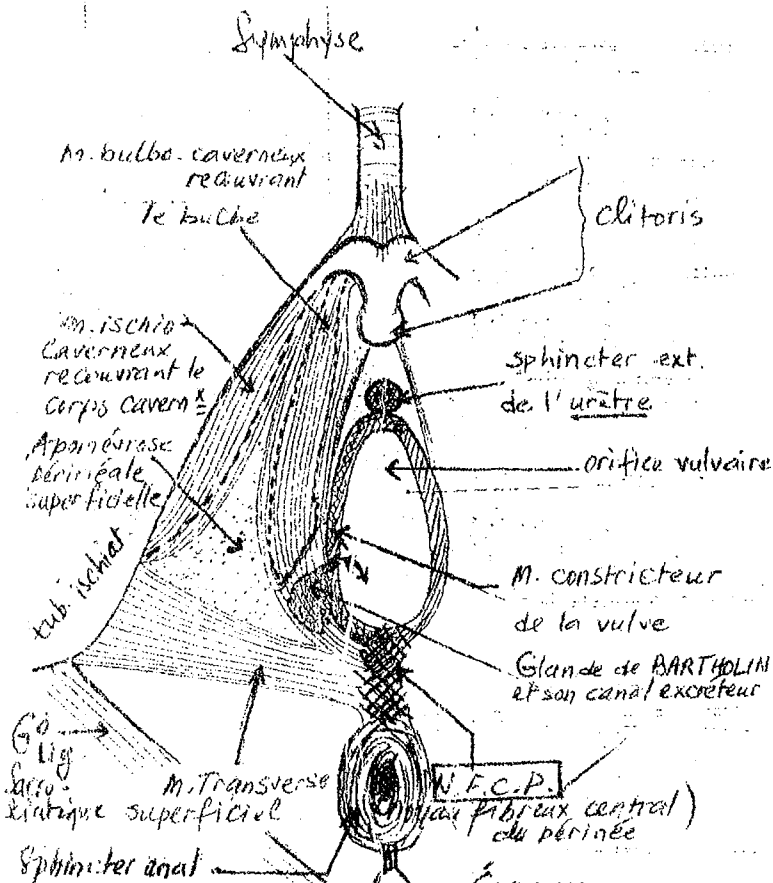 Symphyse
M. bulbo-caverneux
recouvrant
le bulbe
Clitoris
M. ischio
caverneux
recouvrant le
corps cavern x
sphincter ext.
de l'urètre
Aponévrose
périnéale
superficielle
orifice vulvaire
tub. ischiat
M. constricteur
de la vulve
Glande de BARTHOLIN
et son canal excréteur
Gd
lig
Sacro-
M. Transverse
superficiel
N.F.C.P.
(noyau fibreux central)
du périnée
Sphincter anal